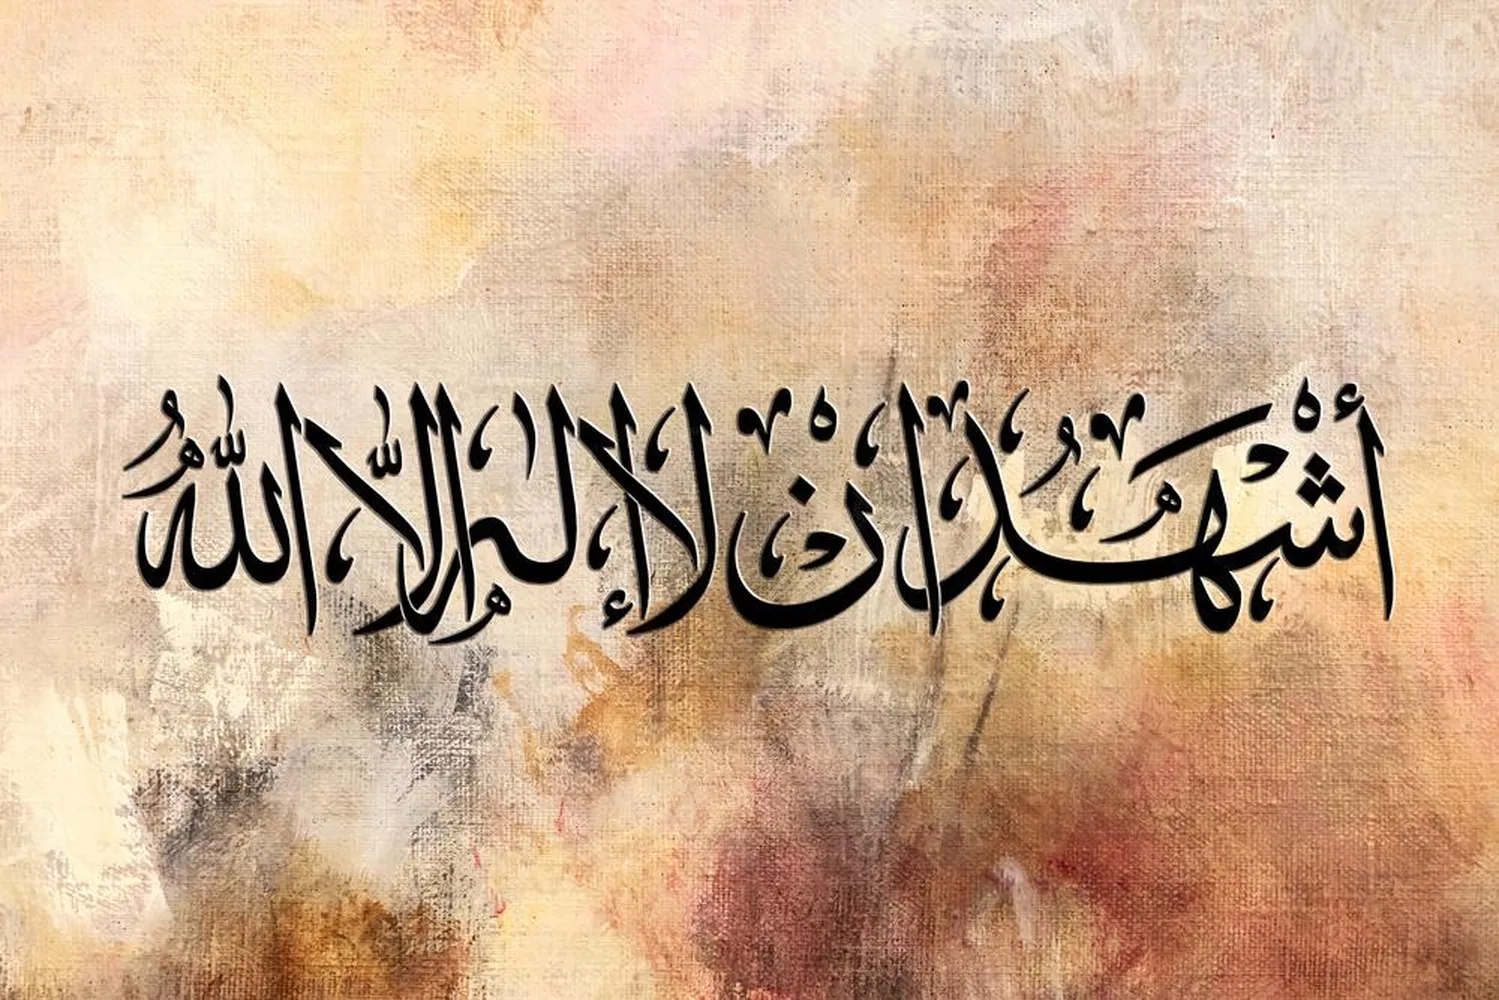 أشْهدُ ان لا إله إلّا اللهُ